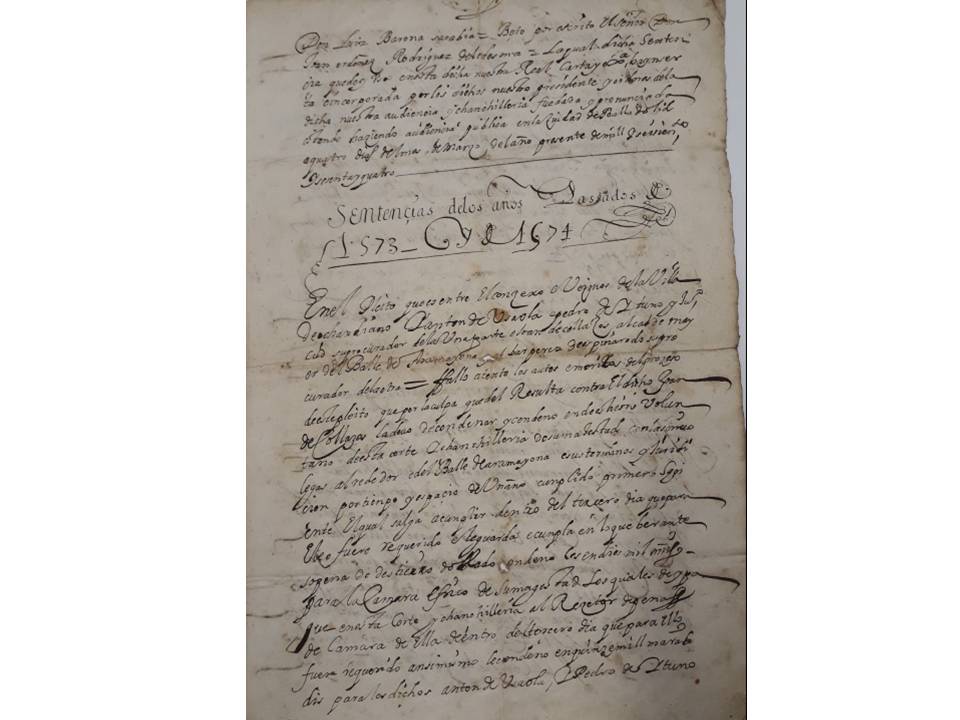 Don Luis Barona sarabia = Boto por escrito El señor Don
Juan ordoñez Rodriguez deledesma = Laqual dicha Senten
cia quede en esta dicha nuestra Real Carta y
ta eincorporada por los dichos nuestro presidente y oidores dela
dicha nuestra audiencia Ychanchilleria fue dada y pronunciada
estando haziendo audiencia publica enla ciudad de Balladolid
aquatro dias delmes de Março delaño presente demill Y seiscientos
Ysesentayquatro
SENtençias delos años Passados
1573 Y 1574
Enel Pleito que es entre El conzexo e Veçinos de la Villa
deochandiano Y anton de Vraola epedro de Ytuno y
suprocurador dela Unaparte eJoan de collaços, alcalde may
or del Balle de Aramayona y gaspar perez de espinaredo supro
curador dela otra = ffallo atento los autos emeritos del prozeso
deestepleito que por laculpa que del Resulta contra El dicho Joan
de Collazos ladevo decondenar ycondeno endestierro Volun
tario deesta corte Ychanchilleria desumagestad conlascinco
leguas alrededor edel Balle de aramayona esusterminos y Juridi
cion portienpo yespacio de Unaño cumplido primero sigui
ente El qual salga acunplir dentro del tercero dia quepara
Ello fuere requerido Eleguarde ecumpla enlo quebrante
sopena de destierro doblado condeno lesendies mil mrs
para la Camara Efisco de sumagestad Los quales de y pa
gue enesta Corte ychanchilleria al Reçetor depenas
de Camara de Ella dentro del tercero dia que para Ello
fuere requerido ansimismo lecondeno enquinzemill marabe
dis para los dichos anton de Vraola, Y Pedro de Ytuno